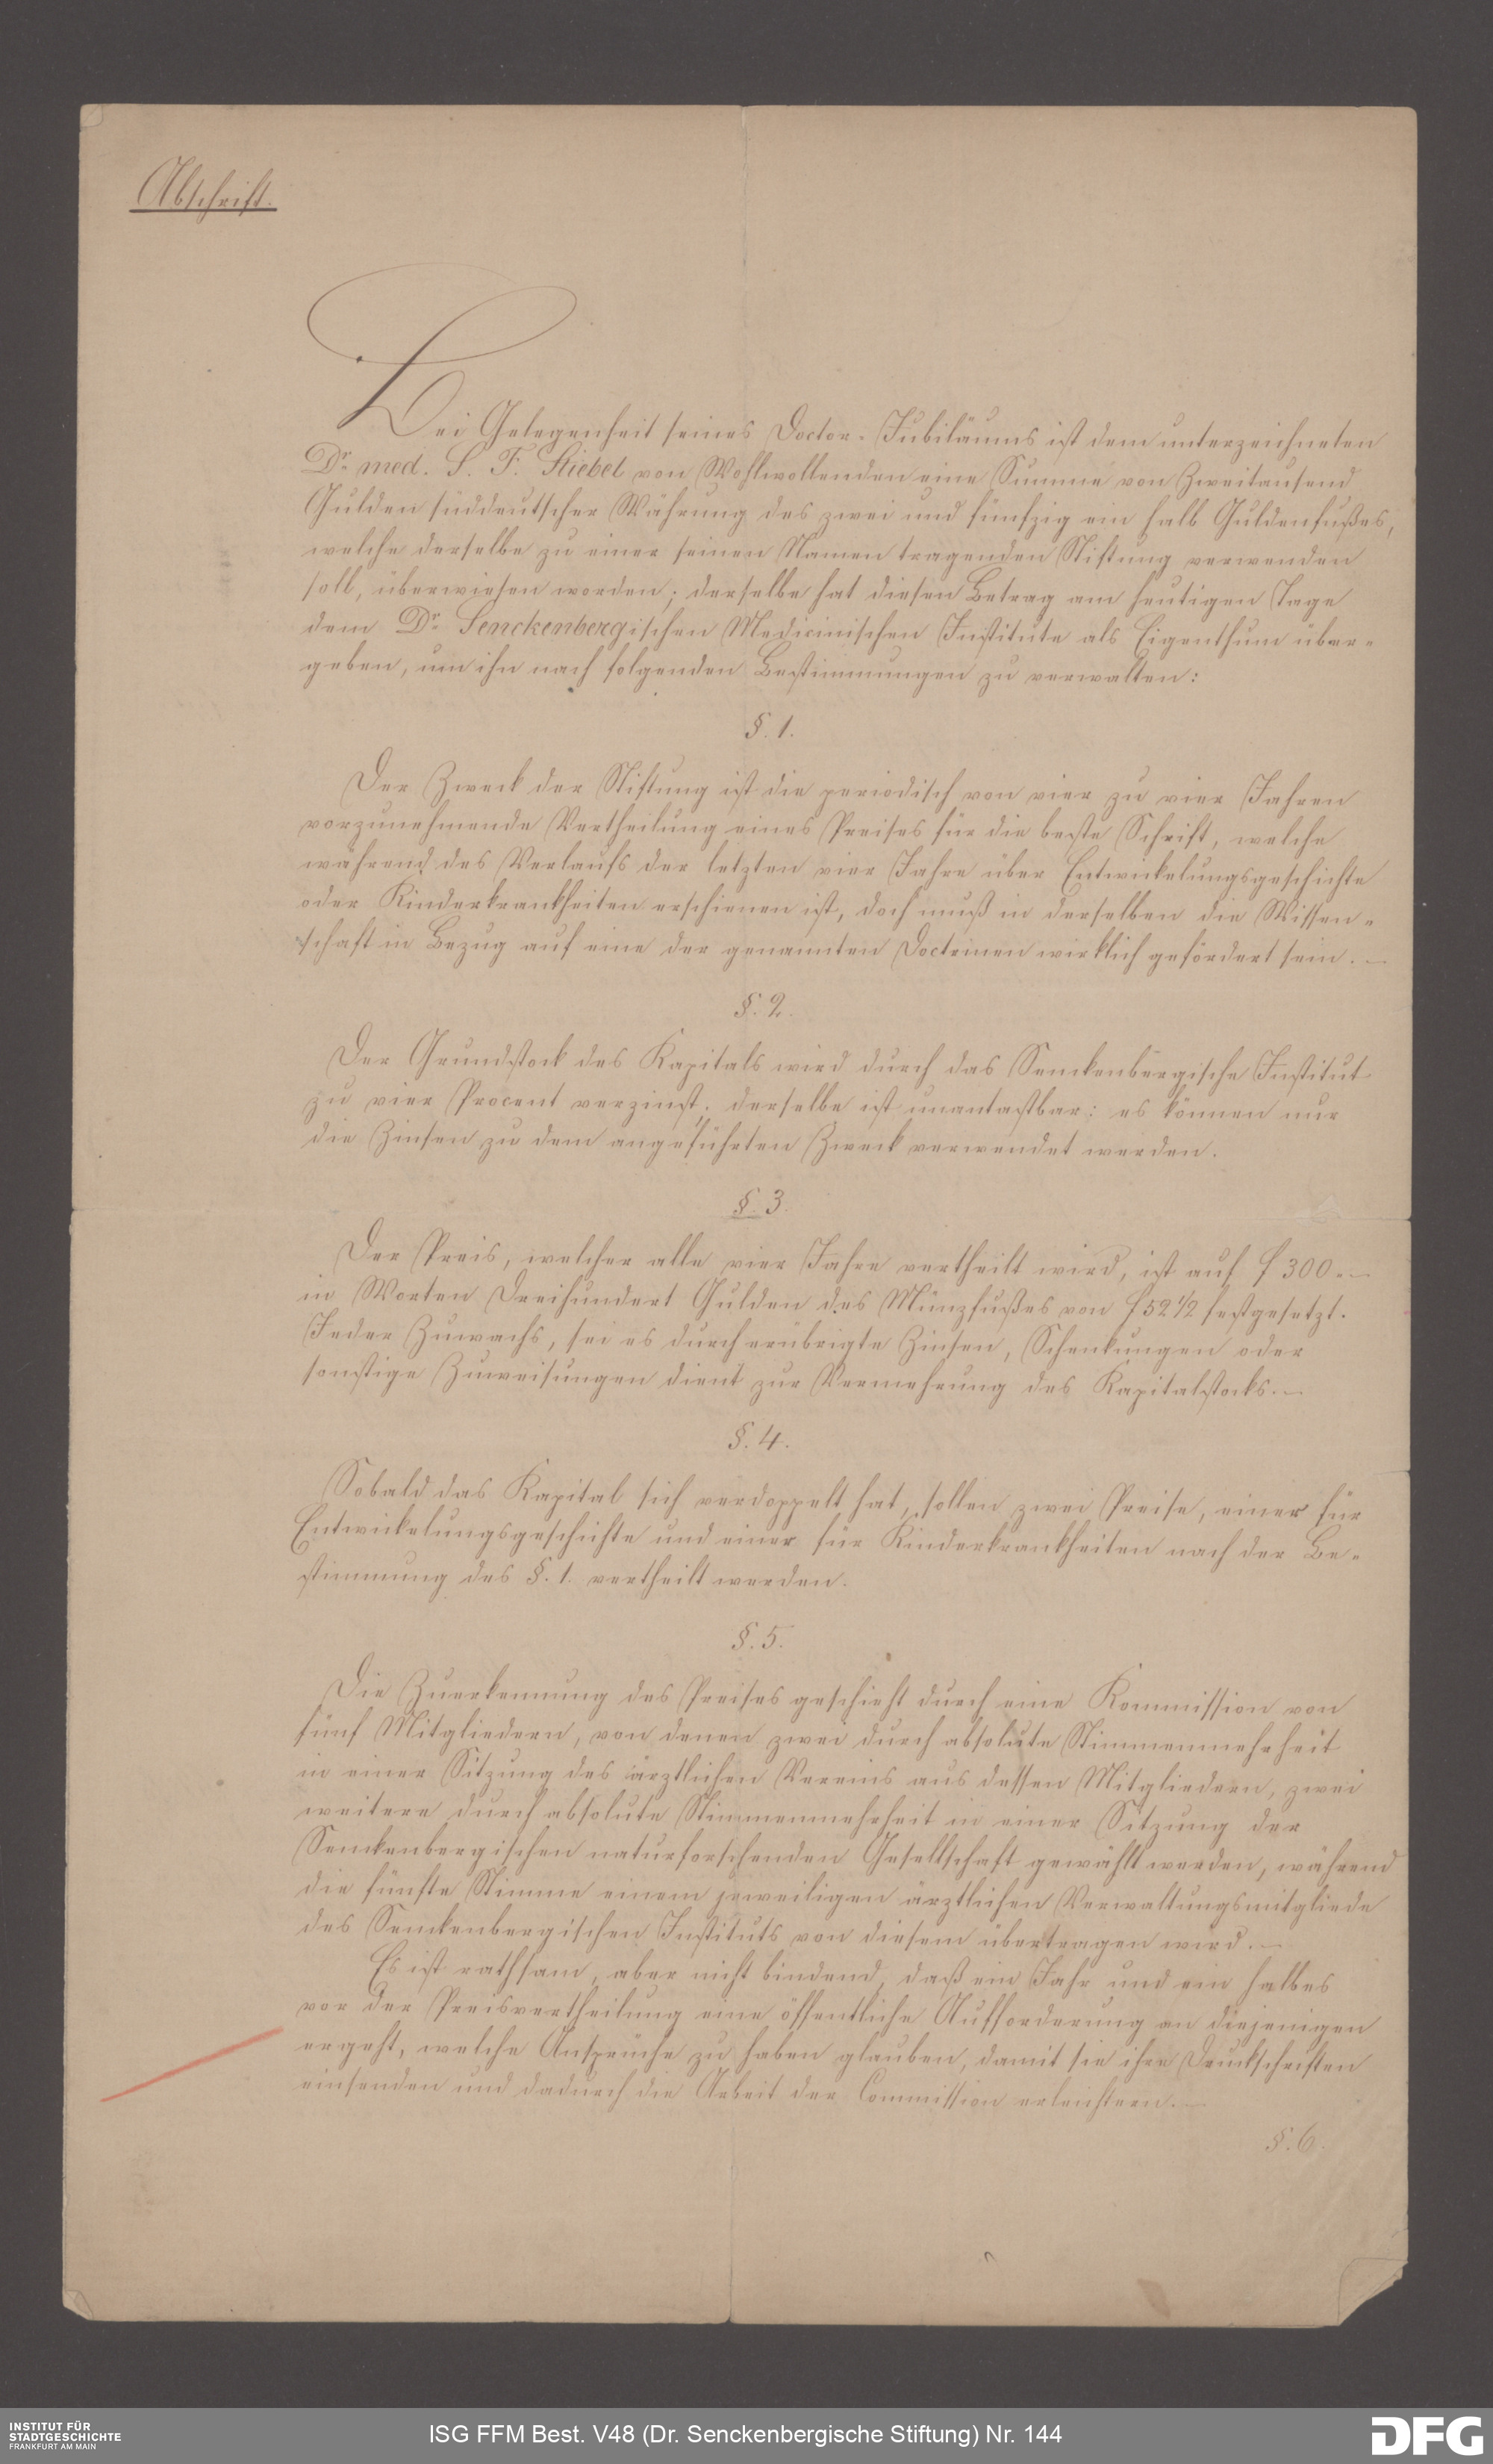 Abschrift.
Bei Gelegenheit seines Doctor-Jubiläums ist dem unterzeichneten
Dr. med. S. F. Stiebel von Wohlwollenden eine Summe von Zweitausend
Gulden süddeutscher Währung des zwei und fünfzig ein halb Guldenfußes,
welche derselbe zu einer seinen Namen tragenden Stiftung verwenden
soll, überwiesen worden; derselbe hat diesen Betrag am heutigen Tage
dem Dr. Senckenbergischen Medicinischen Institute als Eigenthum über-
geben, um ihn nach folgenden Bestimmungen zu verwalten:
§. 1.
Der Zweck der Stiftung ist die periodisch von vier zu vier Jahren
vorzunehmende Vertheilung eines Preises für die beste Schrift, welche
während des Verlaufs der letzten vier Jahre über Entwickelungsgeschichte
oder Kinderkrankheiten erschienen ist, doch muß in derselben die Wissen-
schaft in Bezug auf eine der genannten Doctrinen wirklich gefördert sein. –
§. 2.
Der Grundstock des Kapitals wird durch das Senckenbergische Institut
zu vier Procent verzinst; derselbe ist unantastbar: es können nur
die Zinsen zu dem angeführten Zweck verwendet werden.
§. 3.
Der Preis, welcher alle vier Jahre vertheilt wird, ist auf f 300.–
in Worten Dreihundert Gulden des Münzfußes von f 52 1/2 festgesetzt.
Jeder Zuwachs, sei es durch erübrigte Zinsen, Schenkungen oder
sonstige Zuweisungen dient zur Vermehrung des Kapitalstocks. –
§. 4.
Sobald das Kapital sich verdoppelt hat, sollen zwei Preise, einer für
Entwickelungsgeschichte und einer für Kinderkrankheiten nach der Be-
stimmung des §. 1. vertheilt werden.
§. 5.
Die Zuerkennung des Preises geschieht durch eine Kommission von
fünf Mitgliedern, von denen zwei durch absolute Stimmenmehrheit
in einer Sitzung des ärztlichen Vereins aus dessen Mitgliedern, zwei
weitere durch absolute Stimmenmehrheit in einer Sitzung der
Senckenbergischen naturforschenden Gesellschaft gewählt werden, während
die fünfte Stimme einem jeweiligen ärztlichen Verwaltungsmitgliede
des Senckenbergischen Instituts von diesem übertragen wird. –
Es ist rathsam, aber nicht bindend, daß ein Jahr und ein halbes
vor der Preisvertheilung eine öffentliche Aufforderung an diejenigen
ergeht, welche Ansprüche zu haben glauben, damit sie ihre Druckschriften
einsenden und dadurch die Arbeit der Commission erleichtern. –
§. 6.
INSTITUT FÜR
STADTGESCHICHTE
FRANKFURT AM MAIN
ISG FFM Best. V48 (Dr. Senckenbergische Stiftung) Nr. 144
DFG